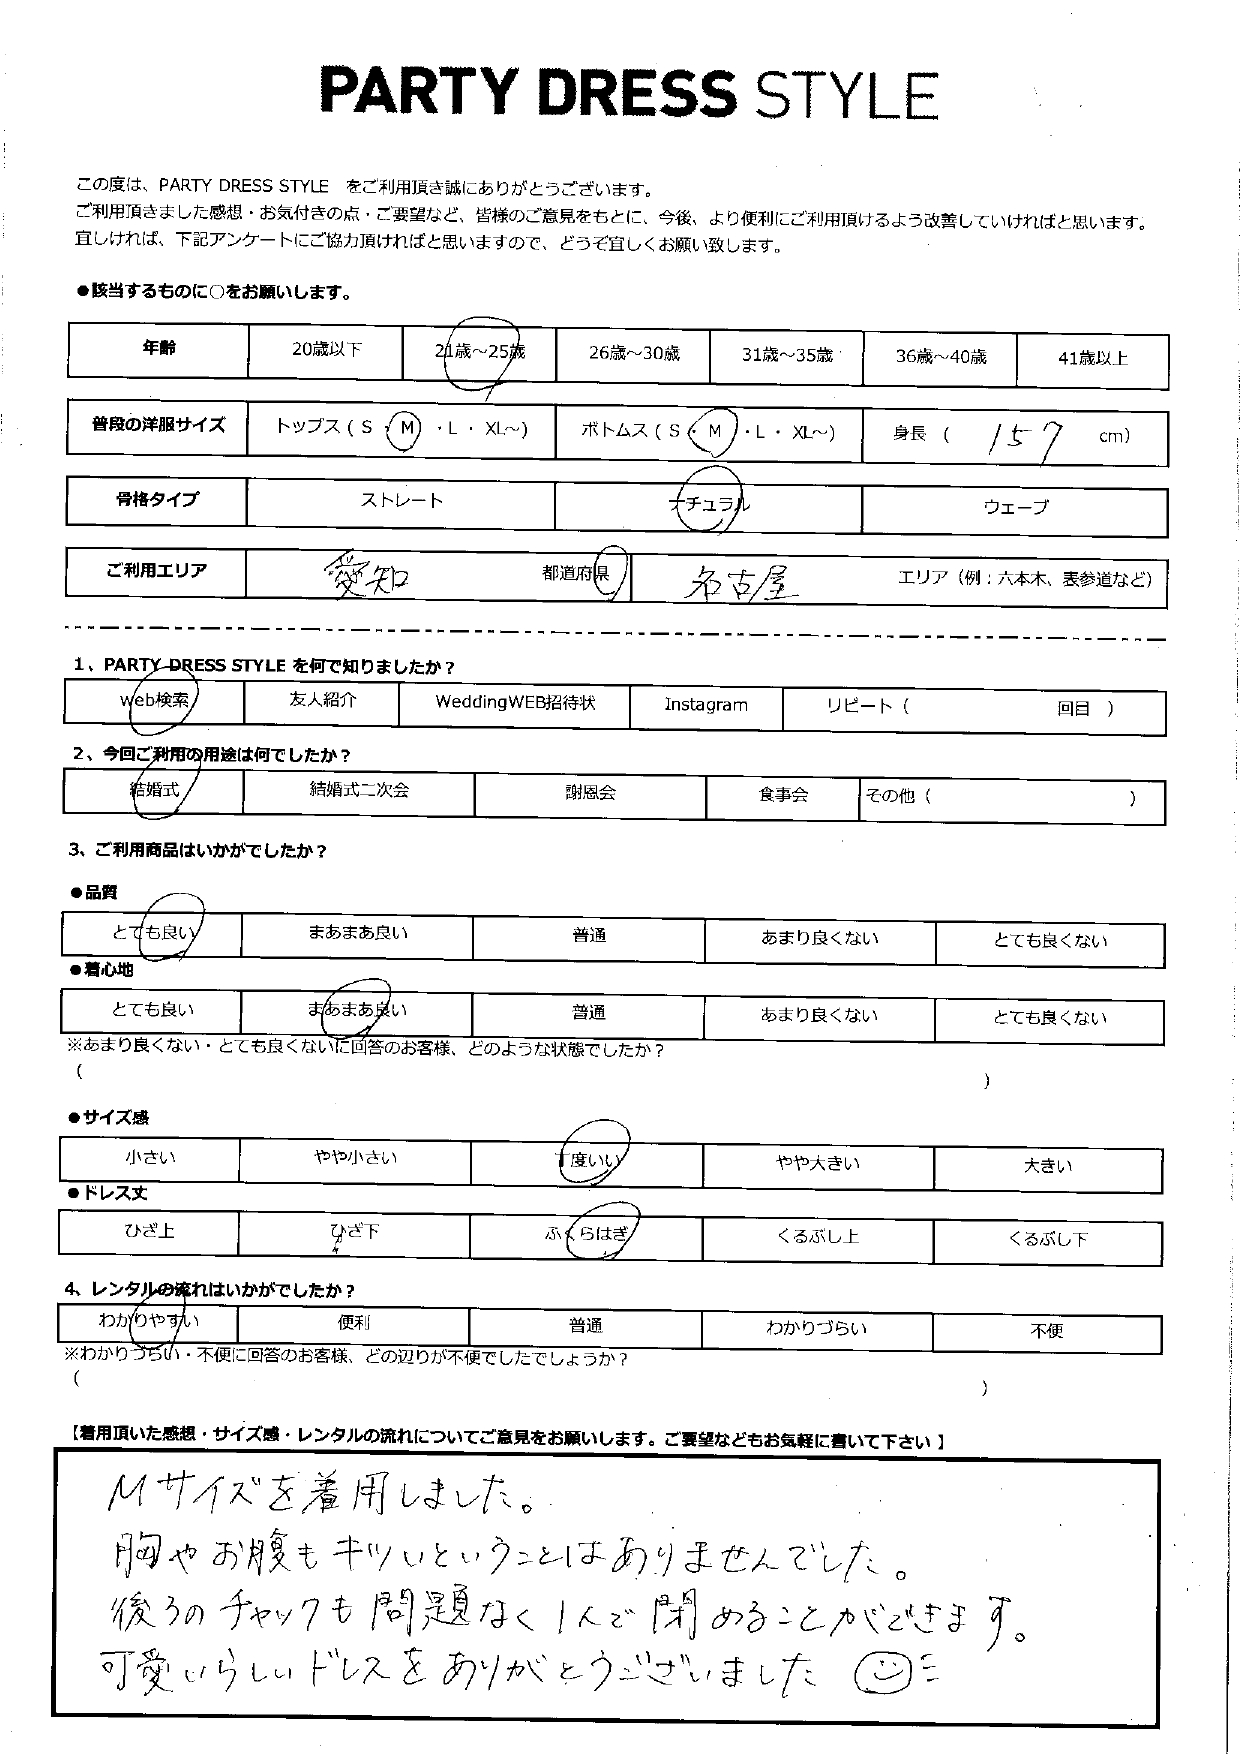 PARTY DRESS STYLE
この度は、PARTY DRESS STYLE をご利用頂き誠にありがとうございます。
ご利用頂きました感想・お気付きの点・ご要望など、皆様のご意見をもとに、今後、より便利にご利用頂けるよう改善していければと思います。
宜しければ、下記アンケートにご協力頂ければと思いますので、どうぞ宜しくお願い致します。
●該当するものに○をお願いします。
年齢 20歳以下 21歳～25歳 26歳～30歳 31歳～35歳 36歳～40歳 41歳以上
普段の洋服サイズ トップス ( S ・ M ・L ・ XL～) ボトムス ( S ・ M ・L ・ XL～) 身長 ( 157 cm)
骨格タイプ ストレート ナチュラル ウェーブ
ご利用エリア 愛知 都道府県 名古屋 エリア（例：六本木、表参道など）
1、PARTY DRESS STYLE を何で知りましたか？
web検索 友人紹介 WeddingWEB招待状 Instagram リピート（ 回目 ）
2、今回ご利用の用途は何でしたか？
結婚式 結婚式二次会 謝恩会 食事会 その他（ ）
3、ご利用商品はいかがでしたか？
●品質
とても良い まあまあ良い 普通 あまり良くない とても良くない
●着心地
とても良い まあまあ良い 普通 あまり良くない とても良くない
※あまり良くない・とても良くないに回答のお客様、どのような状態でしたか？
( )
●サイズ感
小さい やや小さい 丁度いい やや大きい 大きい
●ドレス丈
ひざ上 ひざ下 ふくらはぎ くるぶし上 くるぶし下
4、レンタルの流れはいかがでしたか？
わかりやすい 便利 普通 わかりづらい 不便
※わかりづらい・不便に回答のお客様、どの辺りが不便でしたでしょうか？
( )
【着用頂いた感想・サイズ感・レンタルの流れについてご意見をお願いします。ご要望などもお気軽に書いて下さい 】
Mサイズを着用しました。
胸やお腹もキツいということはありませんでした。
後ろのチャックも問題なく1人で閉めることができます。
可愛いらしいドレスをありがとうございました